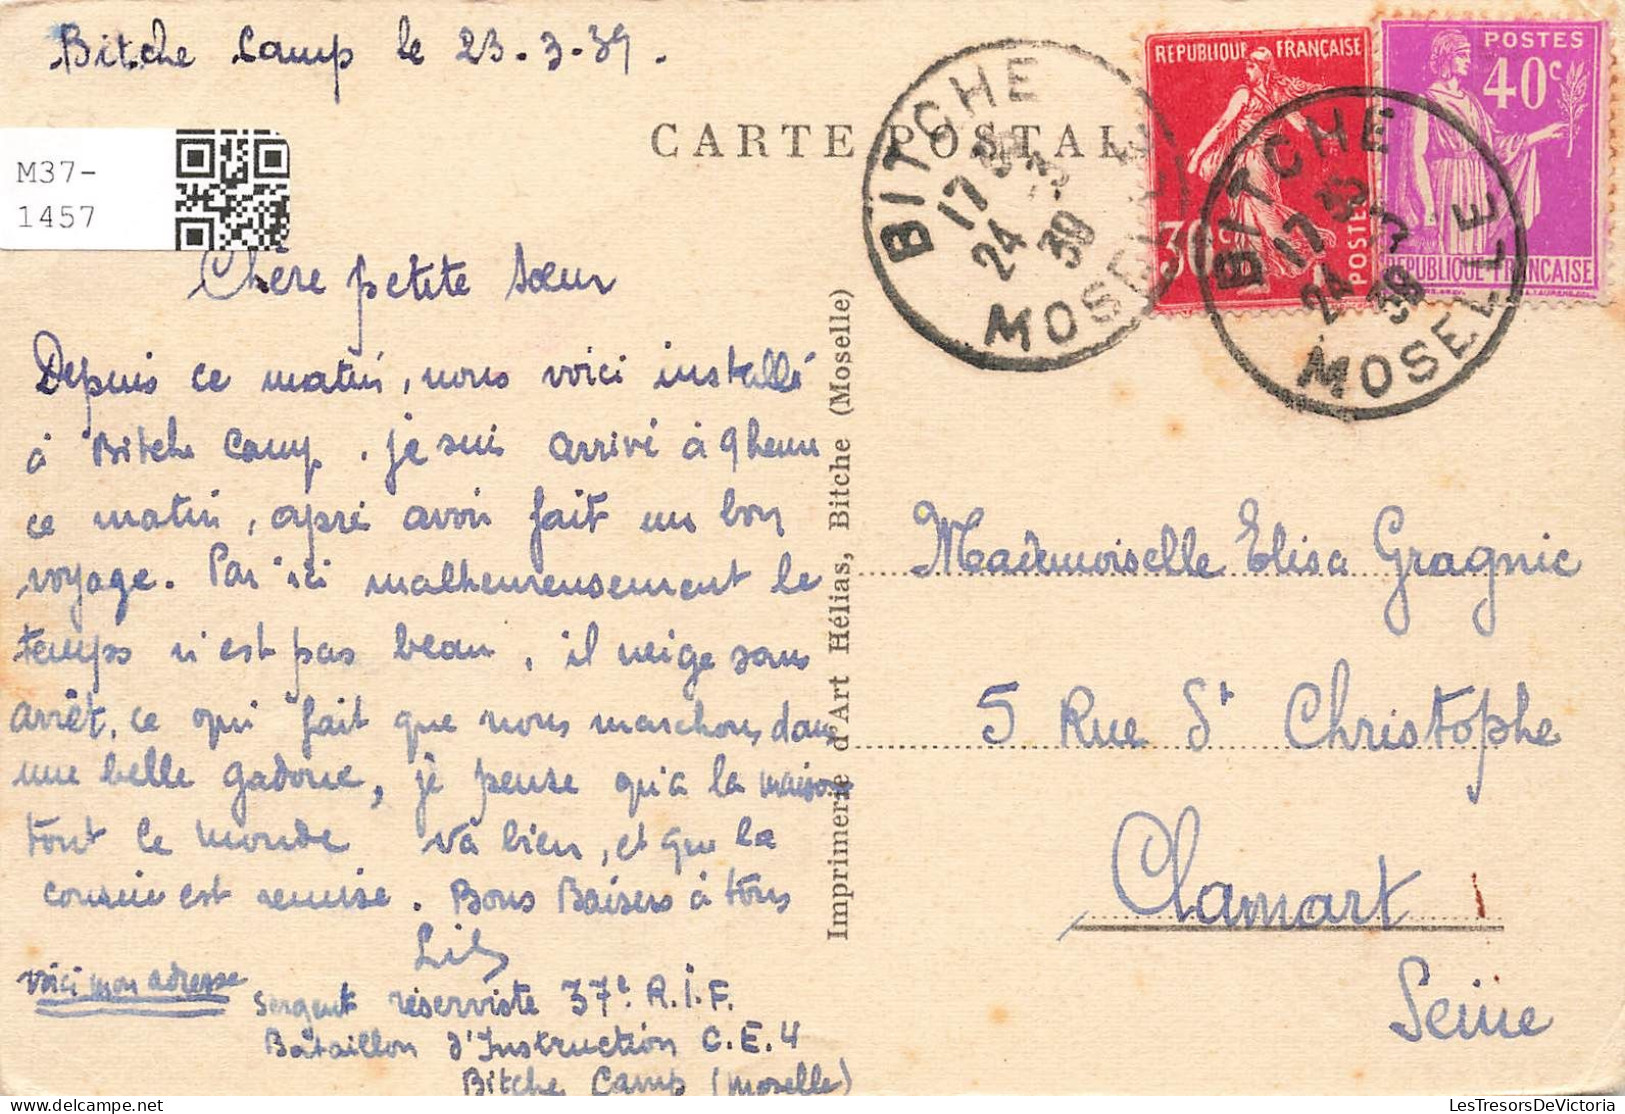 Bitche Camp le 23-3-39.
M37-
1457
CARTE POSTALE
BITCHE
17 35
24 -3
39
MOSELLE
REPUBLIQUE FRANÇAISE
30c
POSTES
POSTES
40c
REPUBLIQUE FRANÇAISE
BITCHE
17 35
24 -3
39
MOSELLE
Chère petite Sœur
Depuis ce matin, nous voici installé
à Bitche Camp. je suis arrivé à 9 heure
ce matin, après avoir fait un bon
voyage. Par ici malheureusement le
temps n'est pas beau, il neige sans
arrêt, ce qui fait que nous marchons dans
une belle gadoue, je pense qu'à la maison
tout le monde va bien, et que la
cousine est remise. Bons Baisers à tous
Voici mon adresse
Sergent réserviste 37e R.I.F.
Bataillon d'Instruction C.E.4
Bitche Camp (Moselle)
Imprimerie d'Art Hélias, Bitche (Moselle)
Mademoiselle Elisa Gragnic
5 Rue St Christophe
Clamart
Seine
LesTresorsDeVictoria